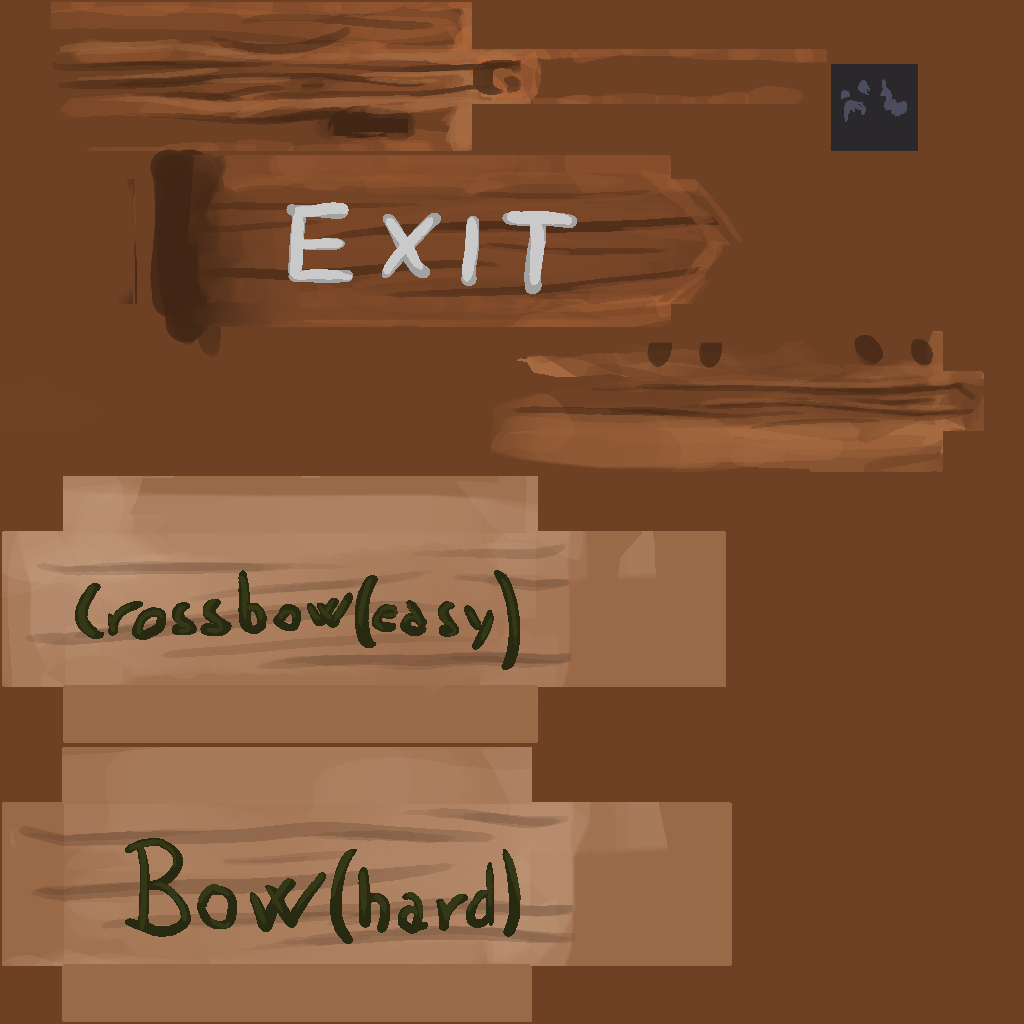 EXIT
Crossbow(easy)
Bow(hard)